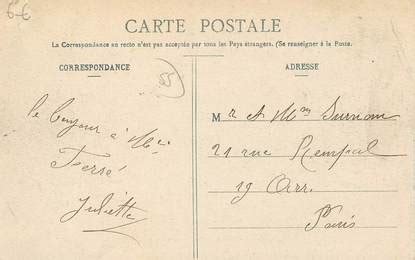 6-6
CARTE POSTALE
La Correspondance au recto n'est pas acceptée par tous les Pays étrangers. (Se renseigner à la Poste.
CORRESPONDANCE
55
le bonjour à Mr
Ferré
Juliette
ADRESSE
Mr et Mme Surnom
21 rue
19 Arr.
Paris